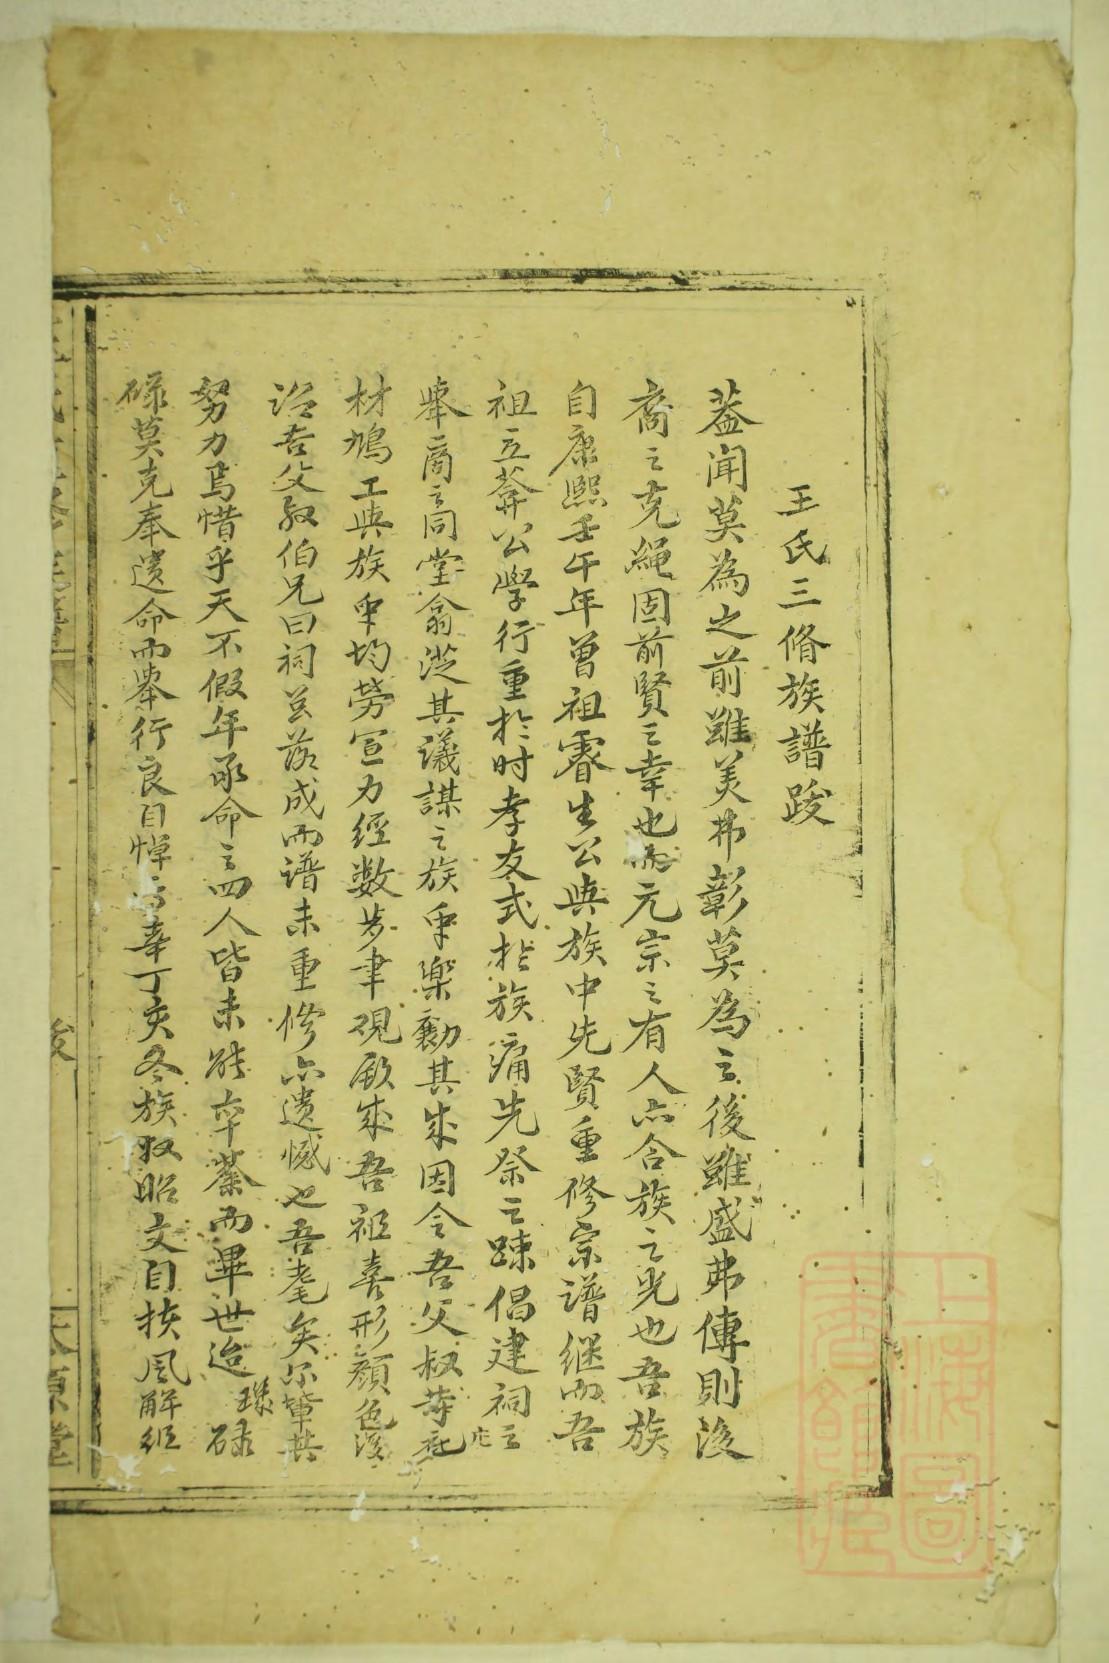 王氏三脩族譜跋
蓋聞莫為之前雖美弗彰莫為之後雖盛弗傳則後
裔之克繩固前賢之幸也而元宗之有人亦合族之光也吾族
自康熙壬午年曾祖睿生公與族中先賢重修宗譜继而吾
祖立莾公學行重於时孝友式於族痛先祭之踈倡建祠之
舉商之同堂翕從其議謀之族众樂勷其成因令吾父叔等庀
材鳩工與族众均勞宣力經数歩聿观厥成吾祖喜形顏色後
诏吾父叔伯兄曰祠玆落成而谱未重修亦遗憾也吾耄矣尔輩其
努力焉惜乎天不假年承命之四人皆未能卒業而畢世迨璣碌
碌莫克奉遺命而舉行良自悼幸丁亥冬族叔昭文自扶風解组
跋
上海图書館藏